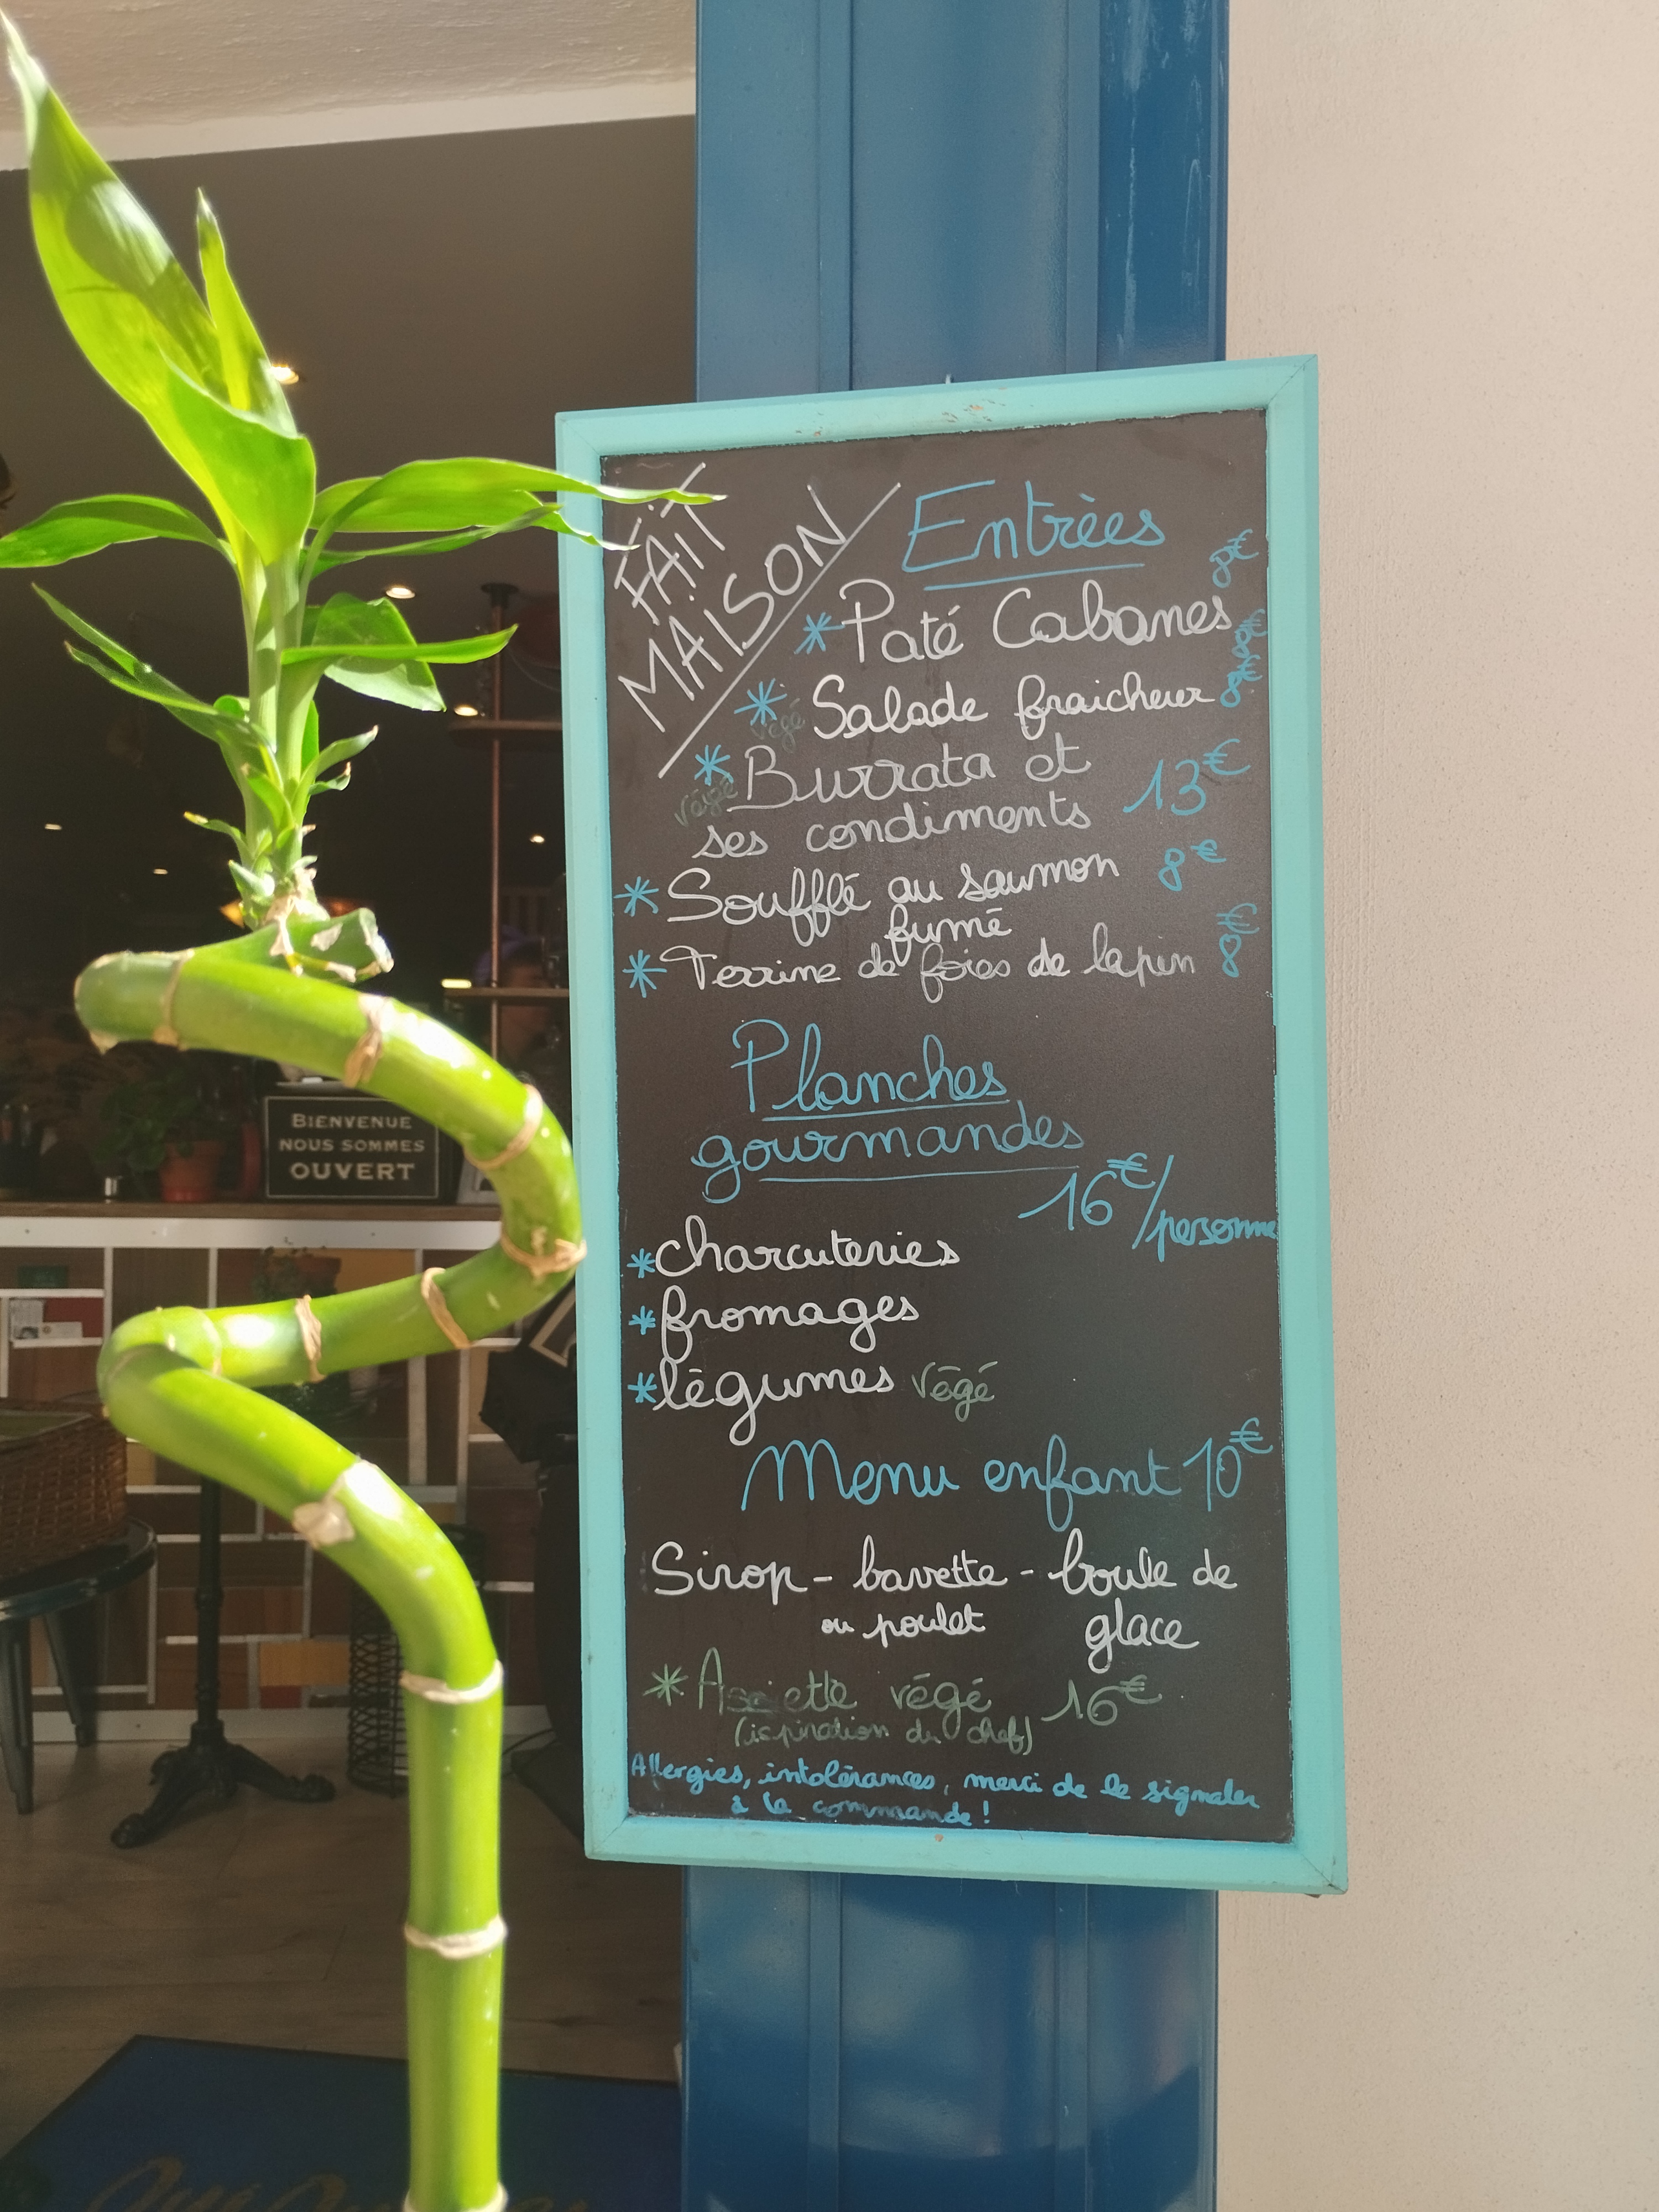 FAIT
MAISON
Entrèes
8€
*Paté Cabanes
8€
* végé Salade fraicheur 8€
* végé Burrata et
ses condiments 13€
* Soufflé au saumon 8€
fumé
* Terrine de foies de lapin 8€
Planches
gourmandes
16€/personne
*charcuteries
*fromages
*légumes végé
Menu enfant 10€
Sirop - bavette - boule de
ou poulet glace
* Assiette végé 16€
(ispiration du chef)
Allergies, intolérances, merci de le signaler
à la commande!
BIENVENUE
NOUS SOMMES
OUVERT